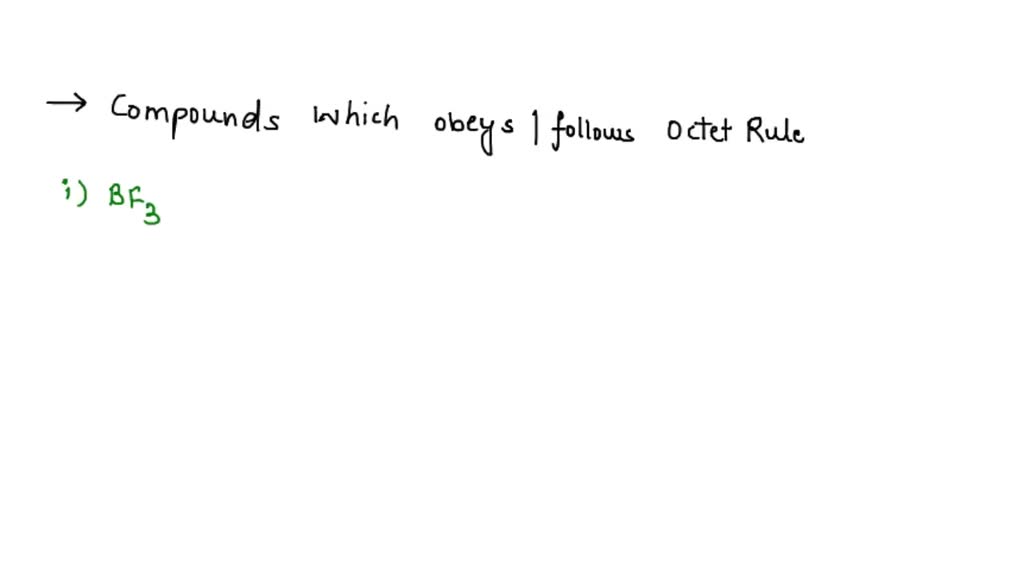 → Compounds which obeys | follows Octet Rule
i) BF₃